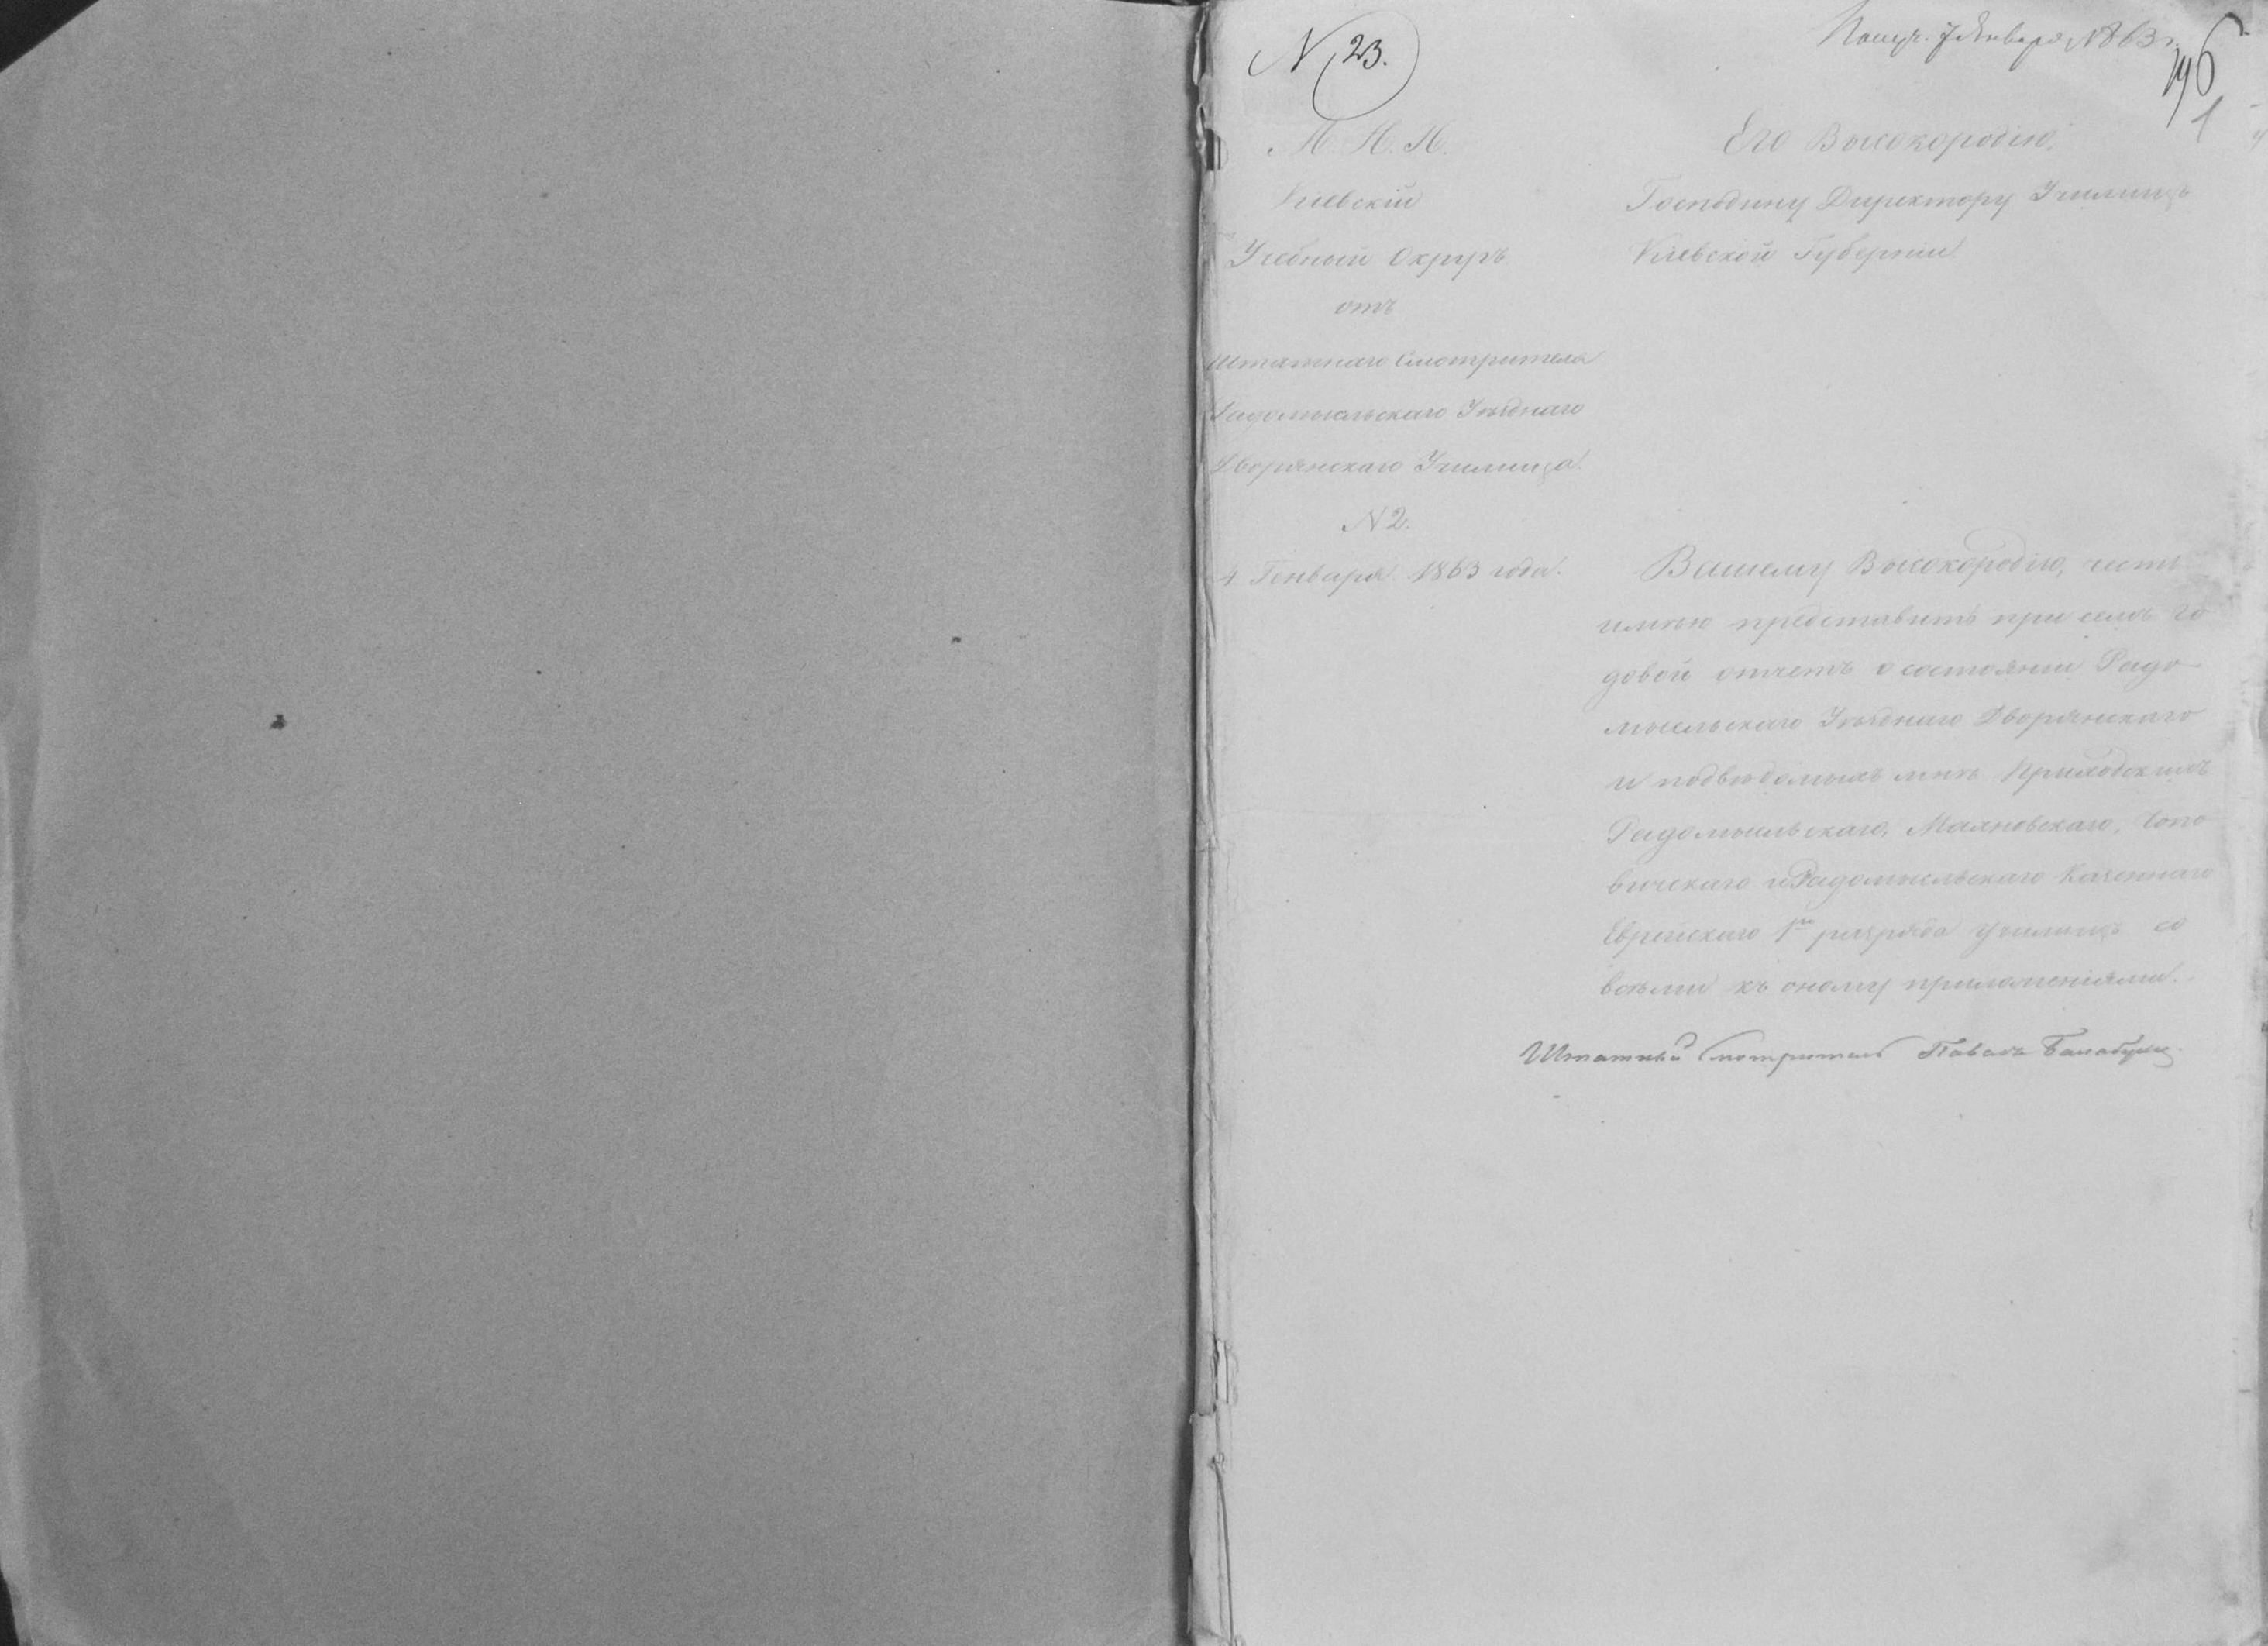 N 23.
Получ. 7 Января 1863 г.
1
М. Н. П.
Кіевскій
Учебный Округъ
отъ
Штатнаго Смотрителя
Радомысльскаго Уѣзднаго
Дворянскаго Училища.
N 2.
4 Генваря 1863 года.
Его Высокородію,
Господину Директору Училищъ
Кіевской Губерніи.
Вашему Высокородію, честь
имѣю представить при семъ го
довой отчетъ о состояніи Радо
мысльскаго Уѣзднаго Дворянскаго
и подвѣдомыхъ мнѣ Приходскихъ
Радомысльскаго, Малновскаго, Чопо
вичскаго и Радомысльскаго Казеннаго
Еврейскаго 1го разряда училищъ со
всѣми къ оному приложеніями.
Штатный Смотритель Павелъ